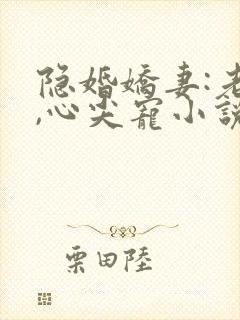 隐婚娇妻:老
,心尖宠小說
栗田陸